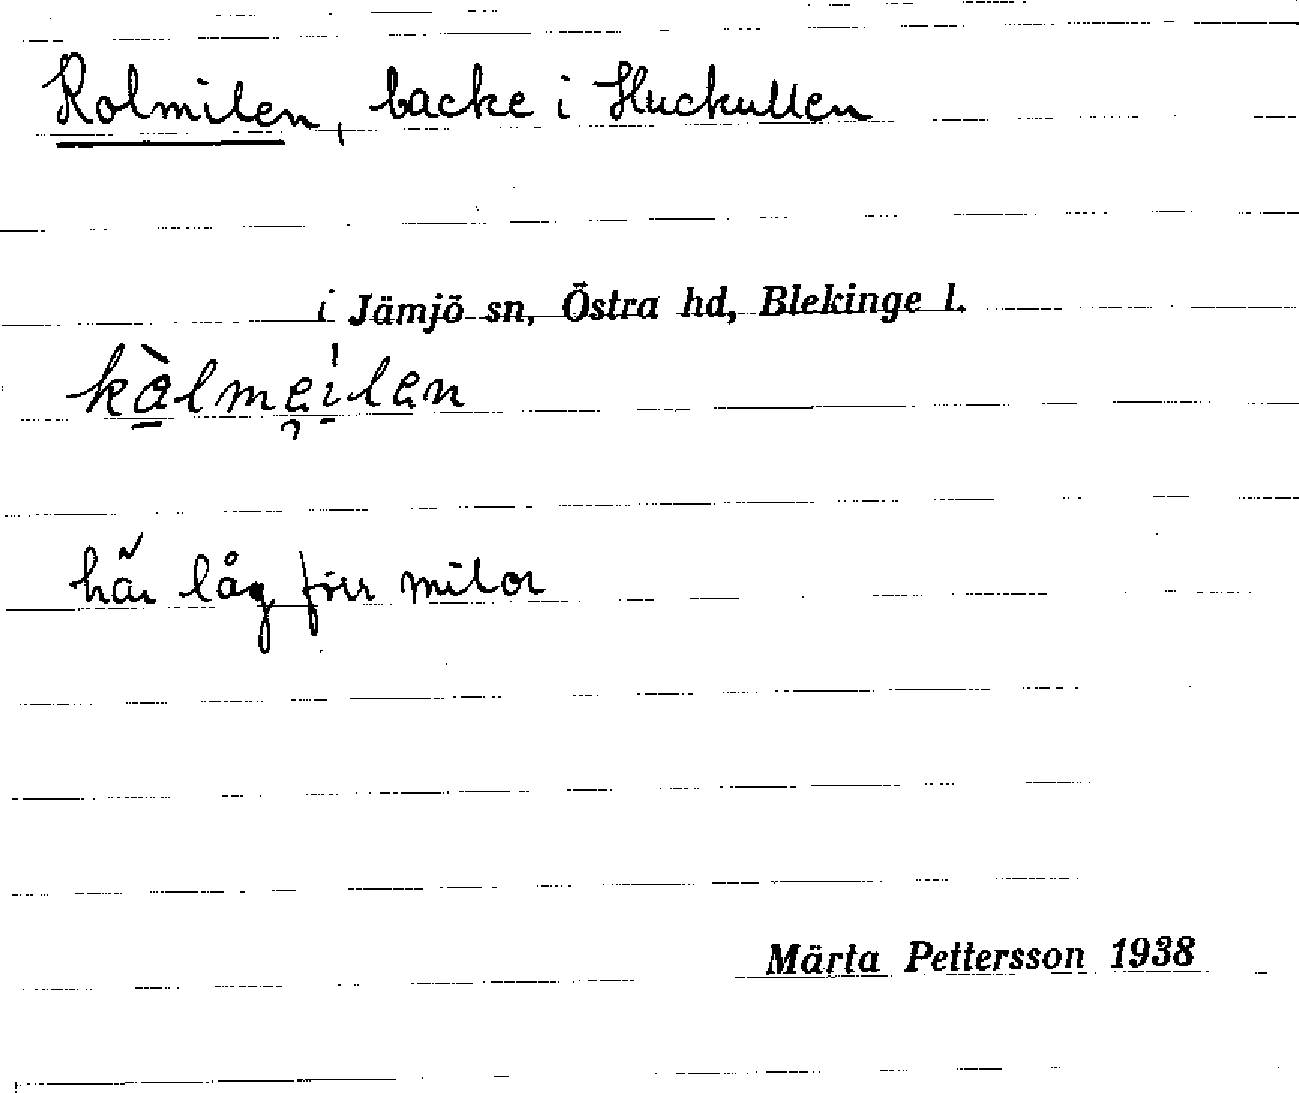 Kolmilen, backe i Huckullen
i Jämjö sn, Östra hd, Blekinge l.
kàlmeilen
här låg förr milor
Märta Pettersson 1938